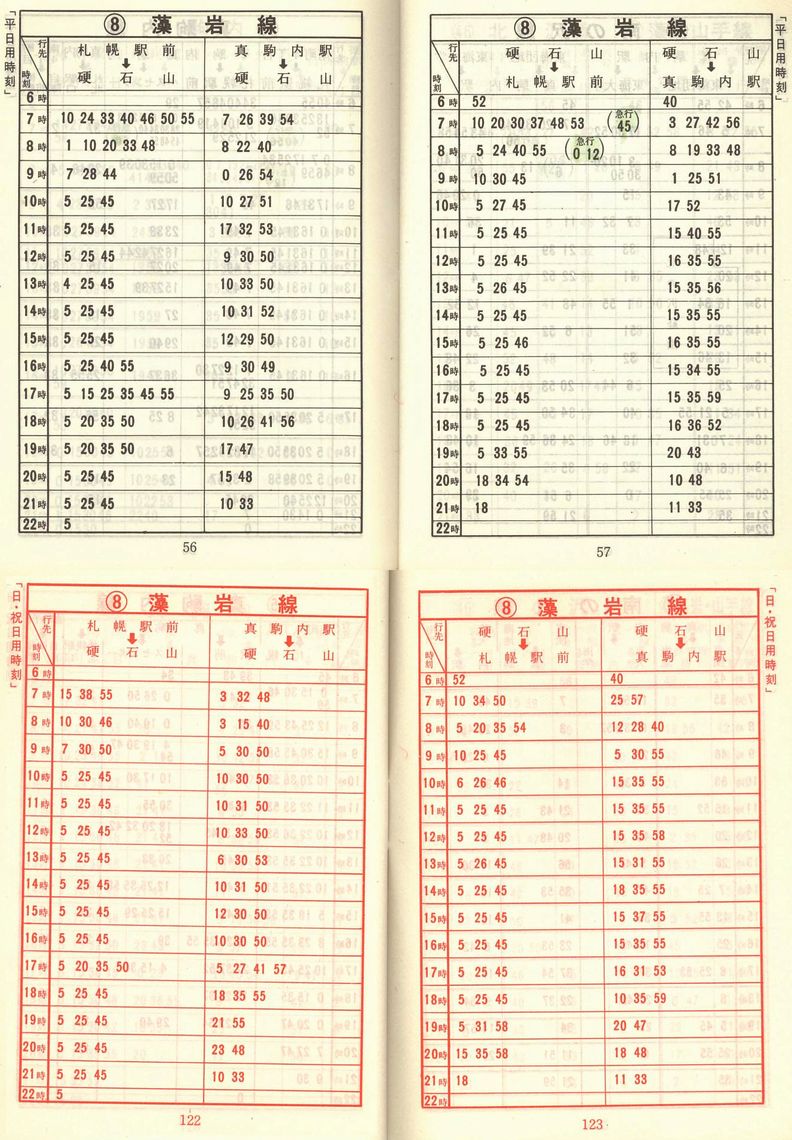 「平日用時刻」
⑧ 藻岩線
行先 時刻 札幌駅前 ↓ 硬石山 真駒内駅 ↓ 硬石山
6時
7時 10 24 33 40 46 50 55 7 26 39 54
8時 1 10 20 33 48 8 22 40
9時 7 28 44 0 26 54
10時 5 25 45 10 27 51
11時 5 25 45 17 32 53
12時 5 25 45 9 30 50
13時 4 25 45 10 33 50
14時 5 25 45 10 31 52
15時 5 25 45 12 29 50
16時 5 25 40 55 9 30 49
17時 5 15 25 35 45 55 9 25 35 50
18時 5 20 35 50 10 26 41 56
19時 5 20 35 50 17 47
20時 5 25 45 15 48
21時 5 25 45 10 33
22時 5
56
「平日用時刻」
⑧ 藻岩線
行先 時刻 硬石山 ↓ 札幌駅前 硬石山 ↓ 真駒内駅
6時 52 40
7時 10 20 30 37 48 53 (急行 45) 3 27 42 56
8時 5 24 40 55 (急行 0 12) 8 19 33 48
9時 10 30 45 1 25 51
10時 5 27 45 17 52
11時 5 25 45 15 40 55
12時 5 25 45 16 35 55
13時 5 26 45 15 35 56
14時 5 25 45 15 35 55
15時 5 25 46 16 35 55
16時 5 25 45 15 34 55
17時 5 25 45 15 35 59
18時 5 25 45 16 36 52
19時 5 33 55 20 43
20時 18 34 54 10 48
21時 18 11 33
22時
57
「日・祝日用時刻」
⑧ 藻岩線
行先 時刻 札幌駅前 ↓ 硬石山 真駒内駅 ↓ 硬石山
6時
7時 15 38 55 3 32 48
8時 10 30 46 3 15 40
9時 7 30 50 5 30 50
10時 5 25 45 10 30 50
11時 5 25 45 10 31 50
12時 5 25 45 10 33 50
13時 5 25 45 6 30 53
14時 5 25 45 10 31 50
15時 5 25 45 12 30 50
16時 5 25 45 10 30 50
17時 5 20 35 50 5 27 41 57
18時 5 25 45 18 35 55
19時 5 25 45 21 55
20時 5 25 45 23 48
21時 5 25 45 10 33
22時 5
122
「日・祝日用時刻」
⑧ 藻岩線
行先 時刻 硬石山 ↓ 札幌駅前 硬石山 ↓ 真駒内駅
6時 52 40
7時 10 34 50 25 57
8時 5 20 35 54 12 28 40
9時 10 25 45 5 30 55
10時 6 26 46 15 35 55
11時 5 25 45 15 35 55
12時 5 25 45 15 35 58
13時 5 26 45 15 31 55
14時 5 25 45 18 35 55
15時 5 25 45 15 37 55
16時 5 25 45 15 35 55
17時 5 25 45 16 31 53
18時 5 25 45 10 35 59
19時 5 31 58 20 47
20時 15 35 58 18 48
21時 18 11 33
22時
123